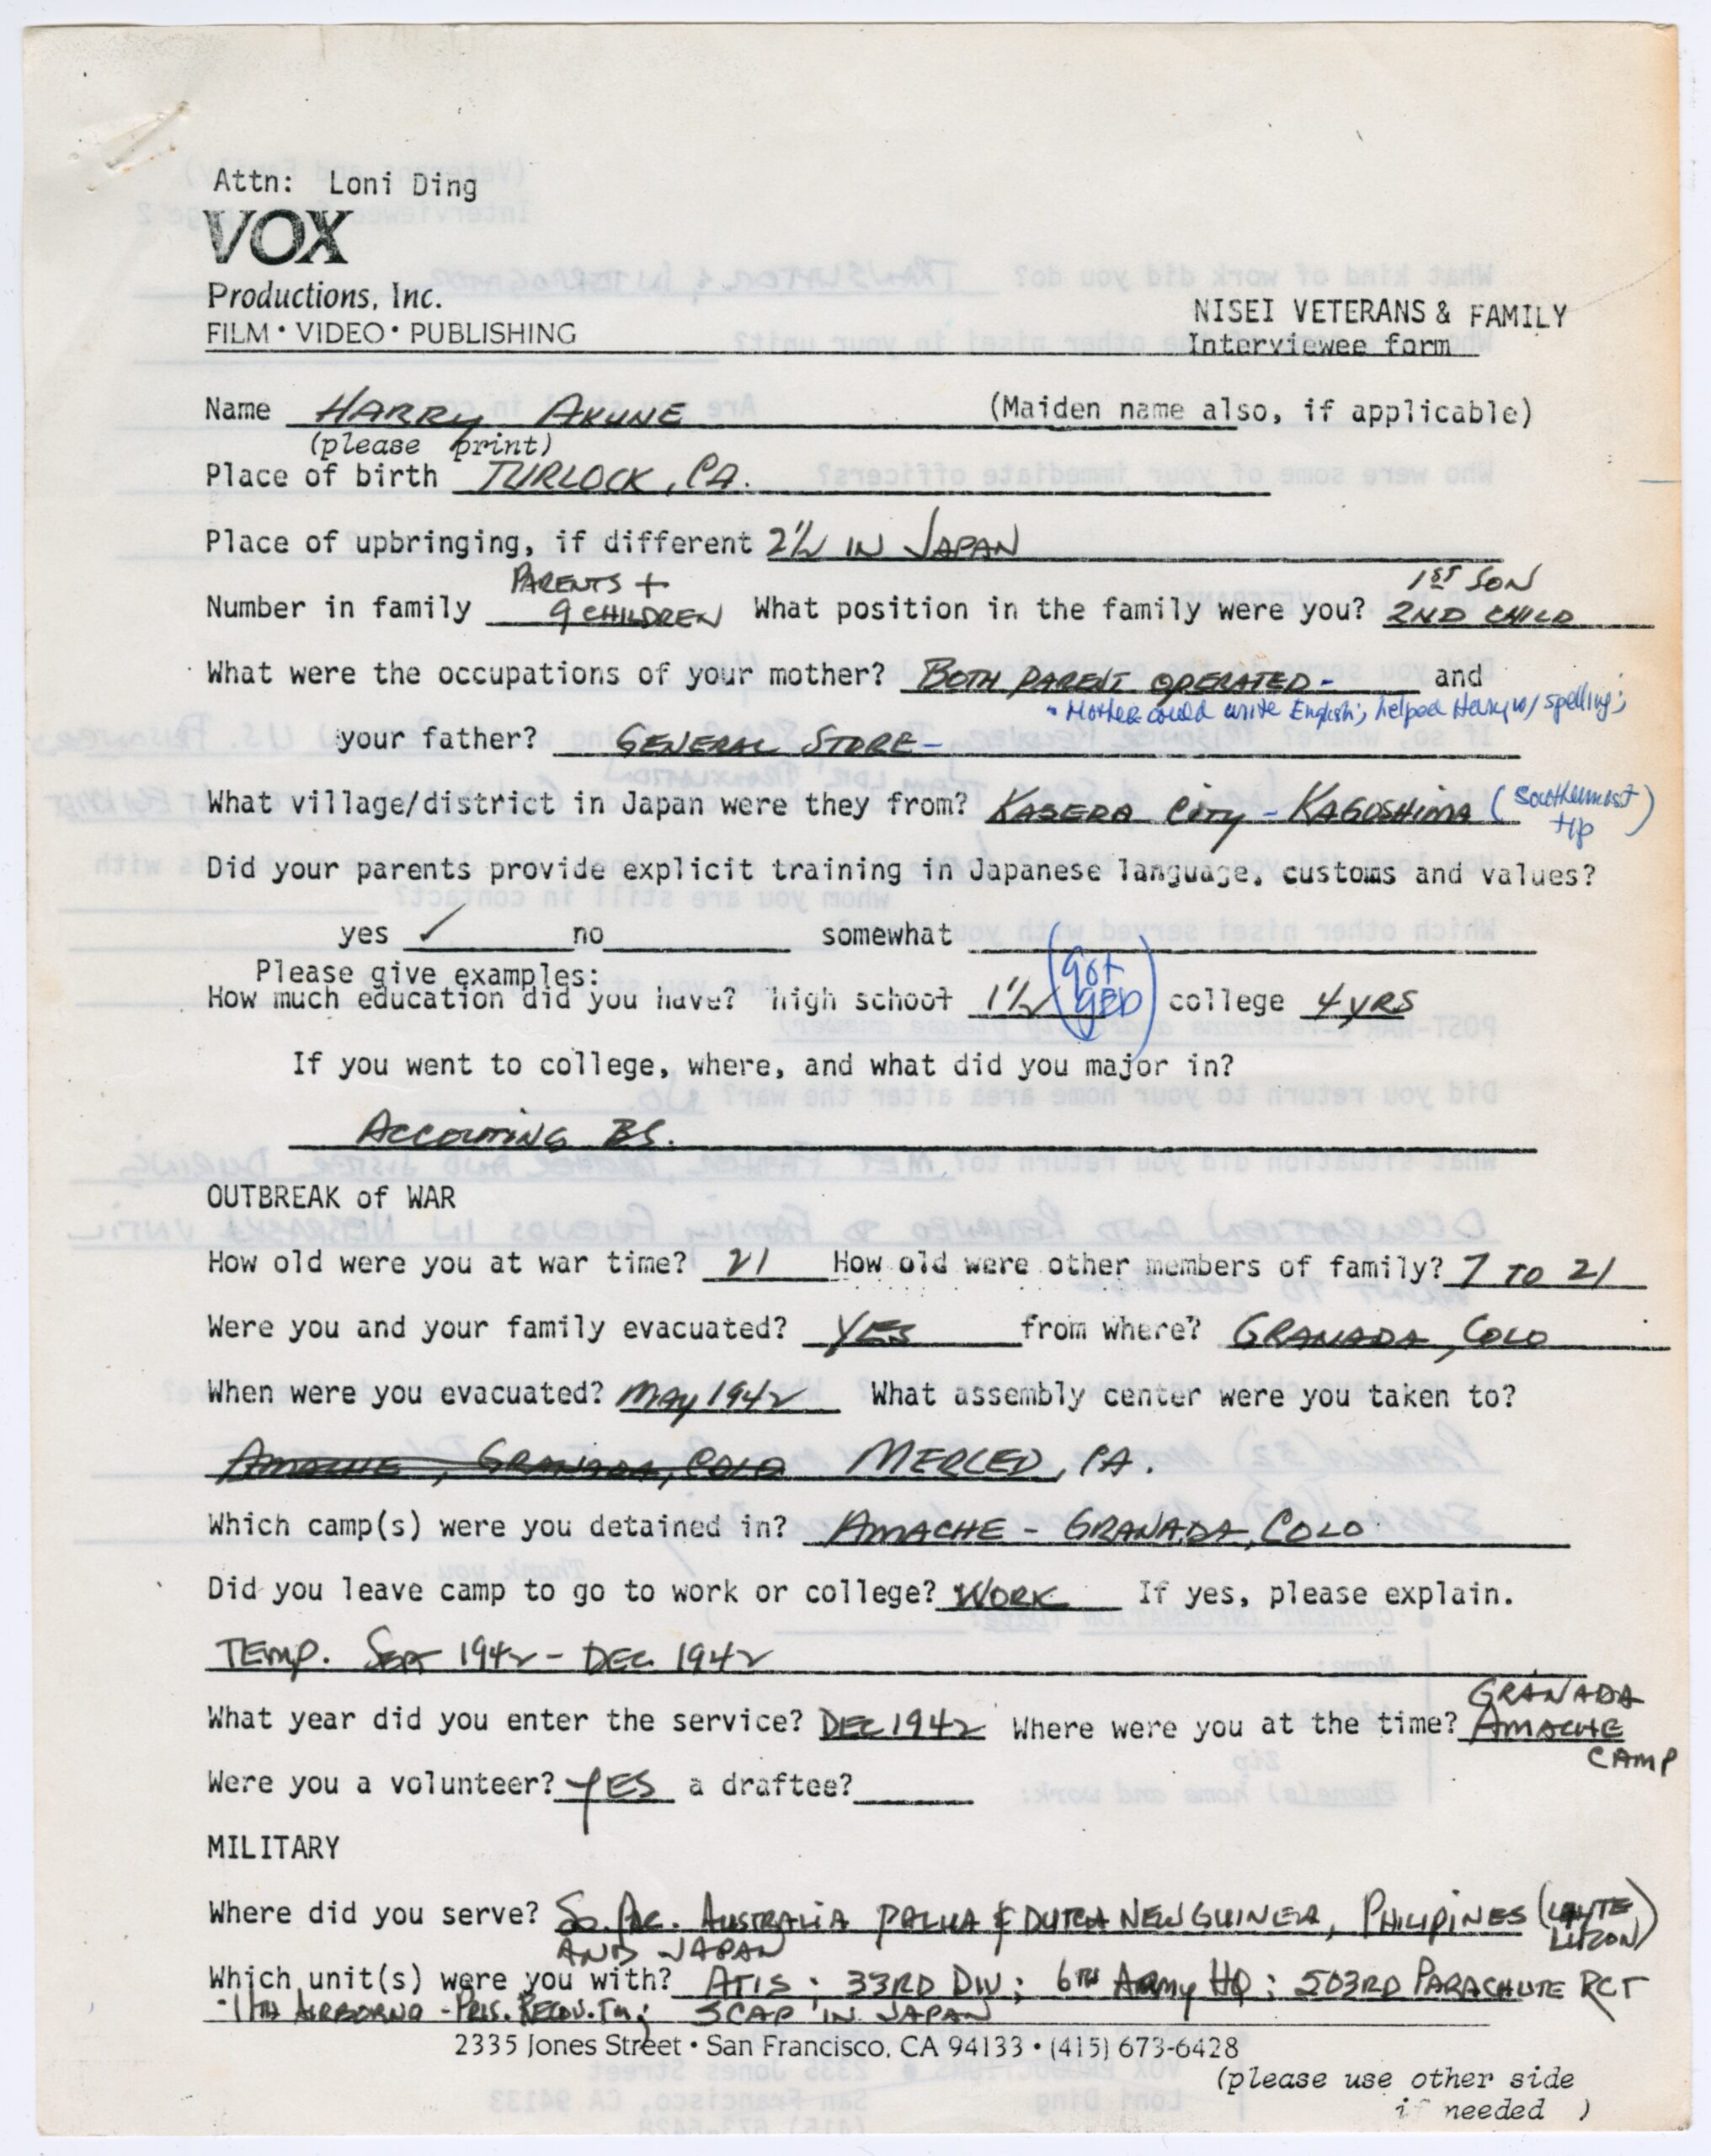 Attn: Loni Ding
VOX
Productions, Inc.
FILM • VIDEO • PUBLISHING
NISEI VETERANS & FAMILY
Interviewee form
Name HARRY AKUNE (Maiden name also, if applicable)
(please print)
Place of birth TURLOCK, CA.
Place of upbringing, if different 2 1/2 IN JAPAN
PARENTS + 1ST SON
Number in family 9 CHILDREN What position in the family were you? 2ND CHILD
What were the occupations of your mother? BOTH PARENT OPERATED- and
- Mother could write English; helped Harry w/ spelling;
your father? GENERAL STORE-
What village/district in Japan were they from? KASEDA City - KAGOSHIMA (Southernmost
tip)
Did your parents provide explicit training in Japanese language, customs and values?
yes ✓ no somewhat
Please give examples:
How much education did you have? high school 1 1/2 (got GED) college 4 YRS
If you went to college, where, and what did you major in?
ACCOUTING BS.
OUTBREAK of WAR
How old were you at war time? 21 How old were other members of family? 7 TO 21
Were you and your family evacuated? YES from where? GRANADA, COLO
When were you evacuated? MAY 1942 What assembly center were you taken to?
AMACHE, GRANADA, COLO MERCED, CA.
Which camp(s) were you detained in? AMACHE - GRANADA, COLO
Did you leave camp to go to work or college? WORK If yes, please explain.
TEMP. SEPT 1942 - DEC. 1942
What year did you enter the service? DEC 1942 Where were you at the time? GRANADA
AMACHE
CAMP
Were you a volunteer? YES a draftee?
MILITARY
Where did you serve? So. Pac. AUSTRALIA PAPUA & DUTCH NEW GUINEA, PHILIPINES (LEYTE
LUZON)
AND JAPAN
Which unit(s) were you with? ATIS; 33RD DIV; 6TH ARMY HQ; 503RD PARACHUTE RCT
- 11TH AIRBORNE - PRIS. RECOV. TM; SCAP IN JAPAN
2335 Jones Street • San Francisco, CA 94133 • (415) 673-6428
(please use other side
if needed )